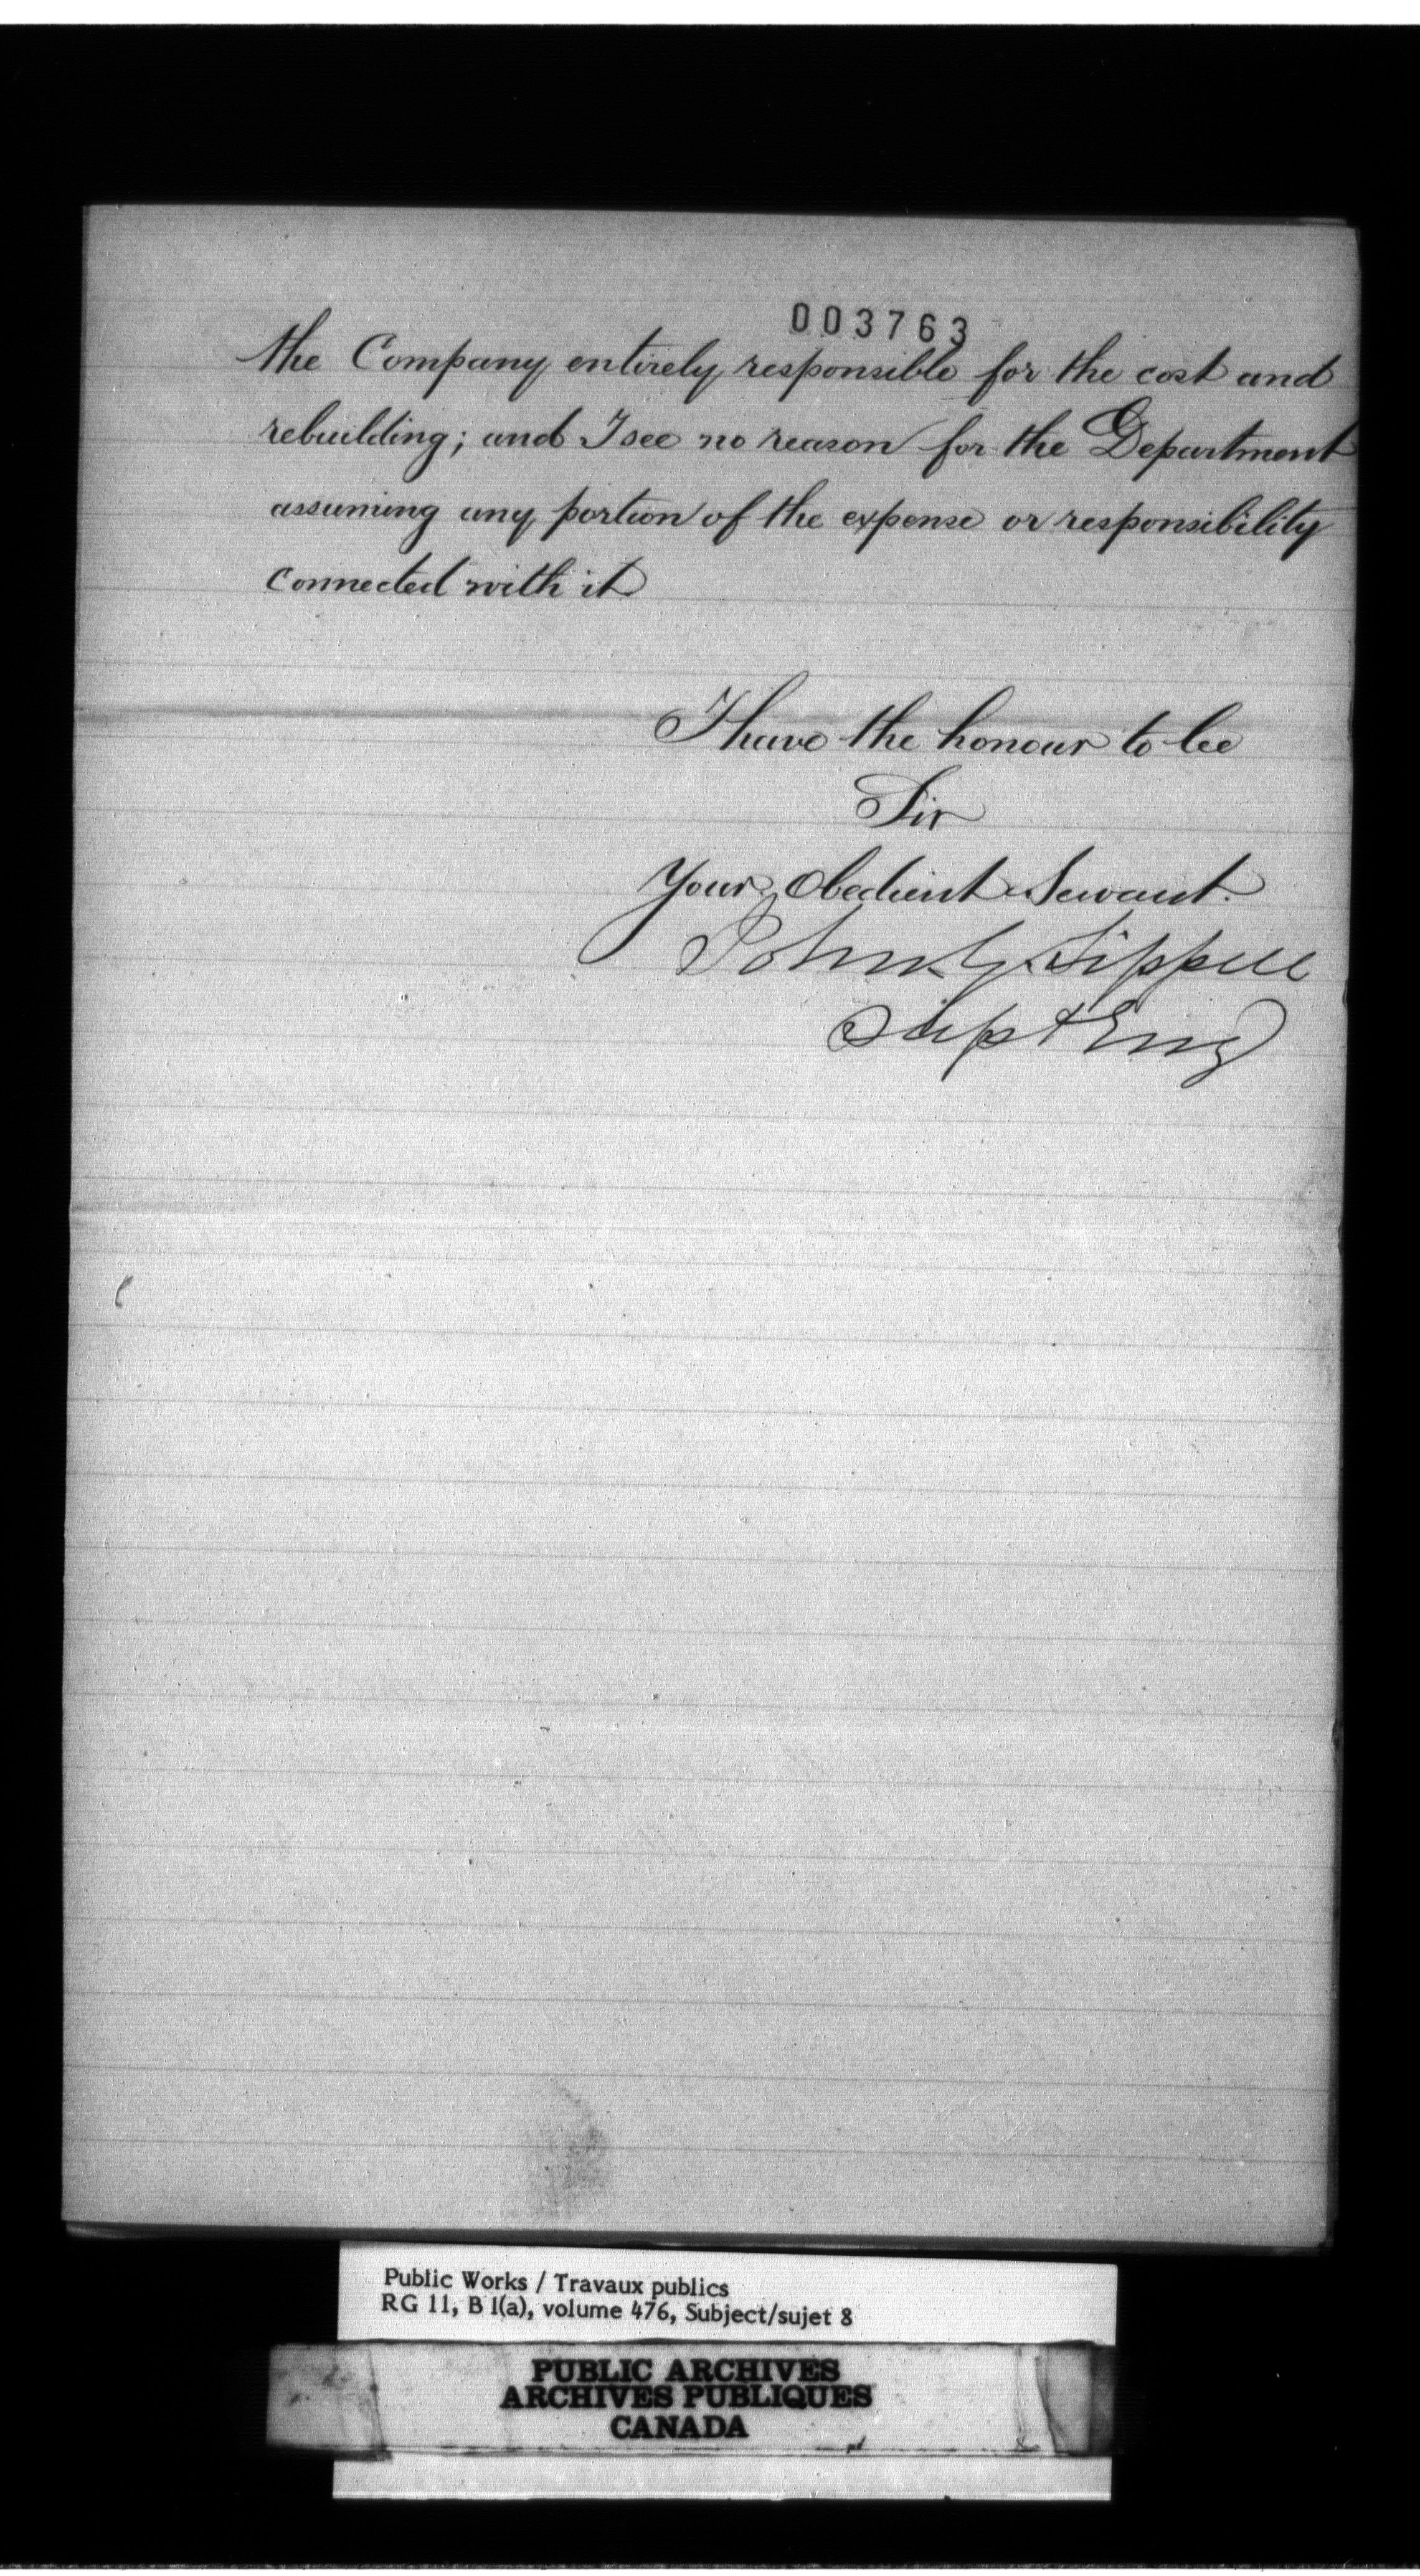 003763
the Company entirely responsible for the cost and
rebuilding; and I see no reason for the Department
assuming any portion of the expense or responsibility
connected with it
I have the honour to be
Sir
Your Obedient Servant.
John G Sippell
Supt Eng
Public Works / Travaux publics
RG 11, B 1(a), volume 476, Subject/sujet 8
PUBLIC ARCHIVES
ARCHIVES PUBLIQUES
CANADA